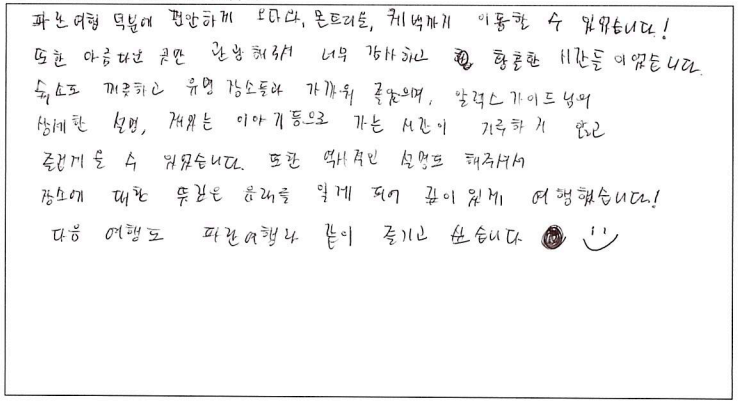 파란여행 덕분에 편안하게 오타와, 몬트리올, 퀘벡까지 이동할 수 있었습니다!
또한 아름다운 곳만 관광해주셔서 너무 감사하고 황홀한 시간들이었습니다.
숙소도 깨끗하고 유명 장소들과 가까워 좋았으며, 알렉스가이드님의
상세한 설명, 재밌는 이야기등으로 가는 시간이 지루하지 않고
즐겁게 올 수 있었습니다. 또한 역사적인 설명도 해주셔서
장소에 대한 뜻깊은 유래를 알게 되어 깊이있게 여행했습니다!
다음 여행도 파란여행과 같이 즐기고 싶습니다